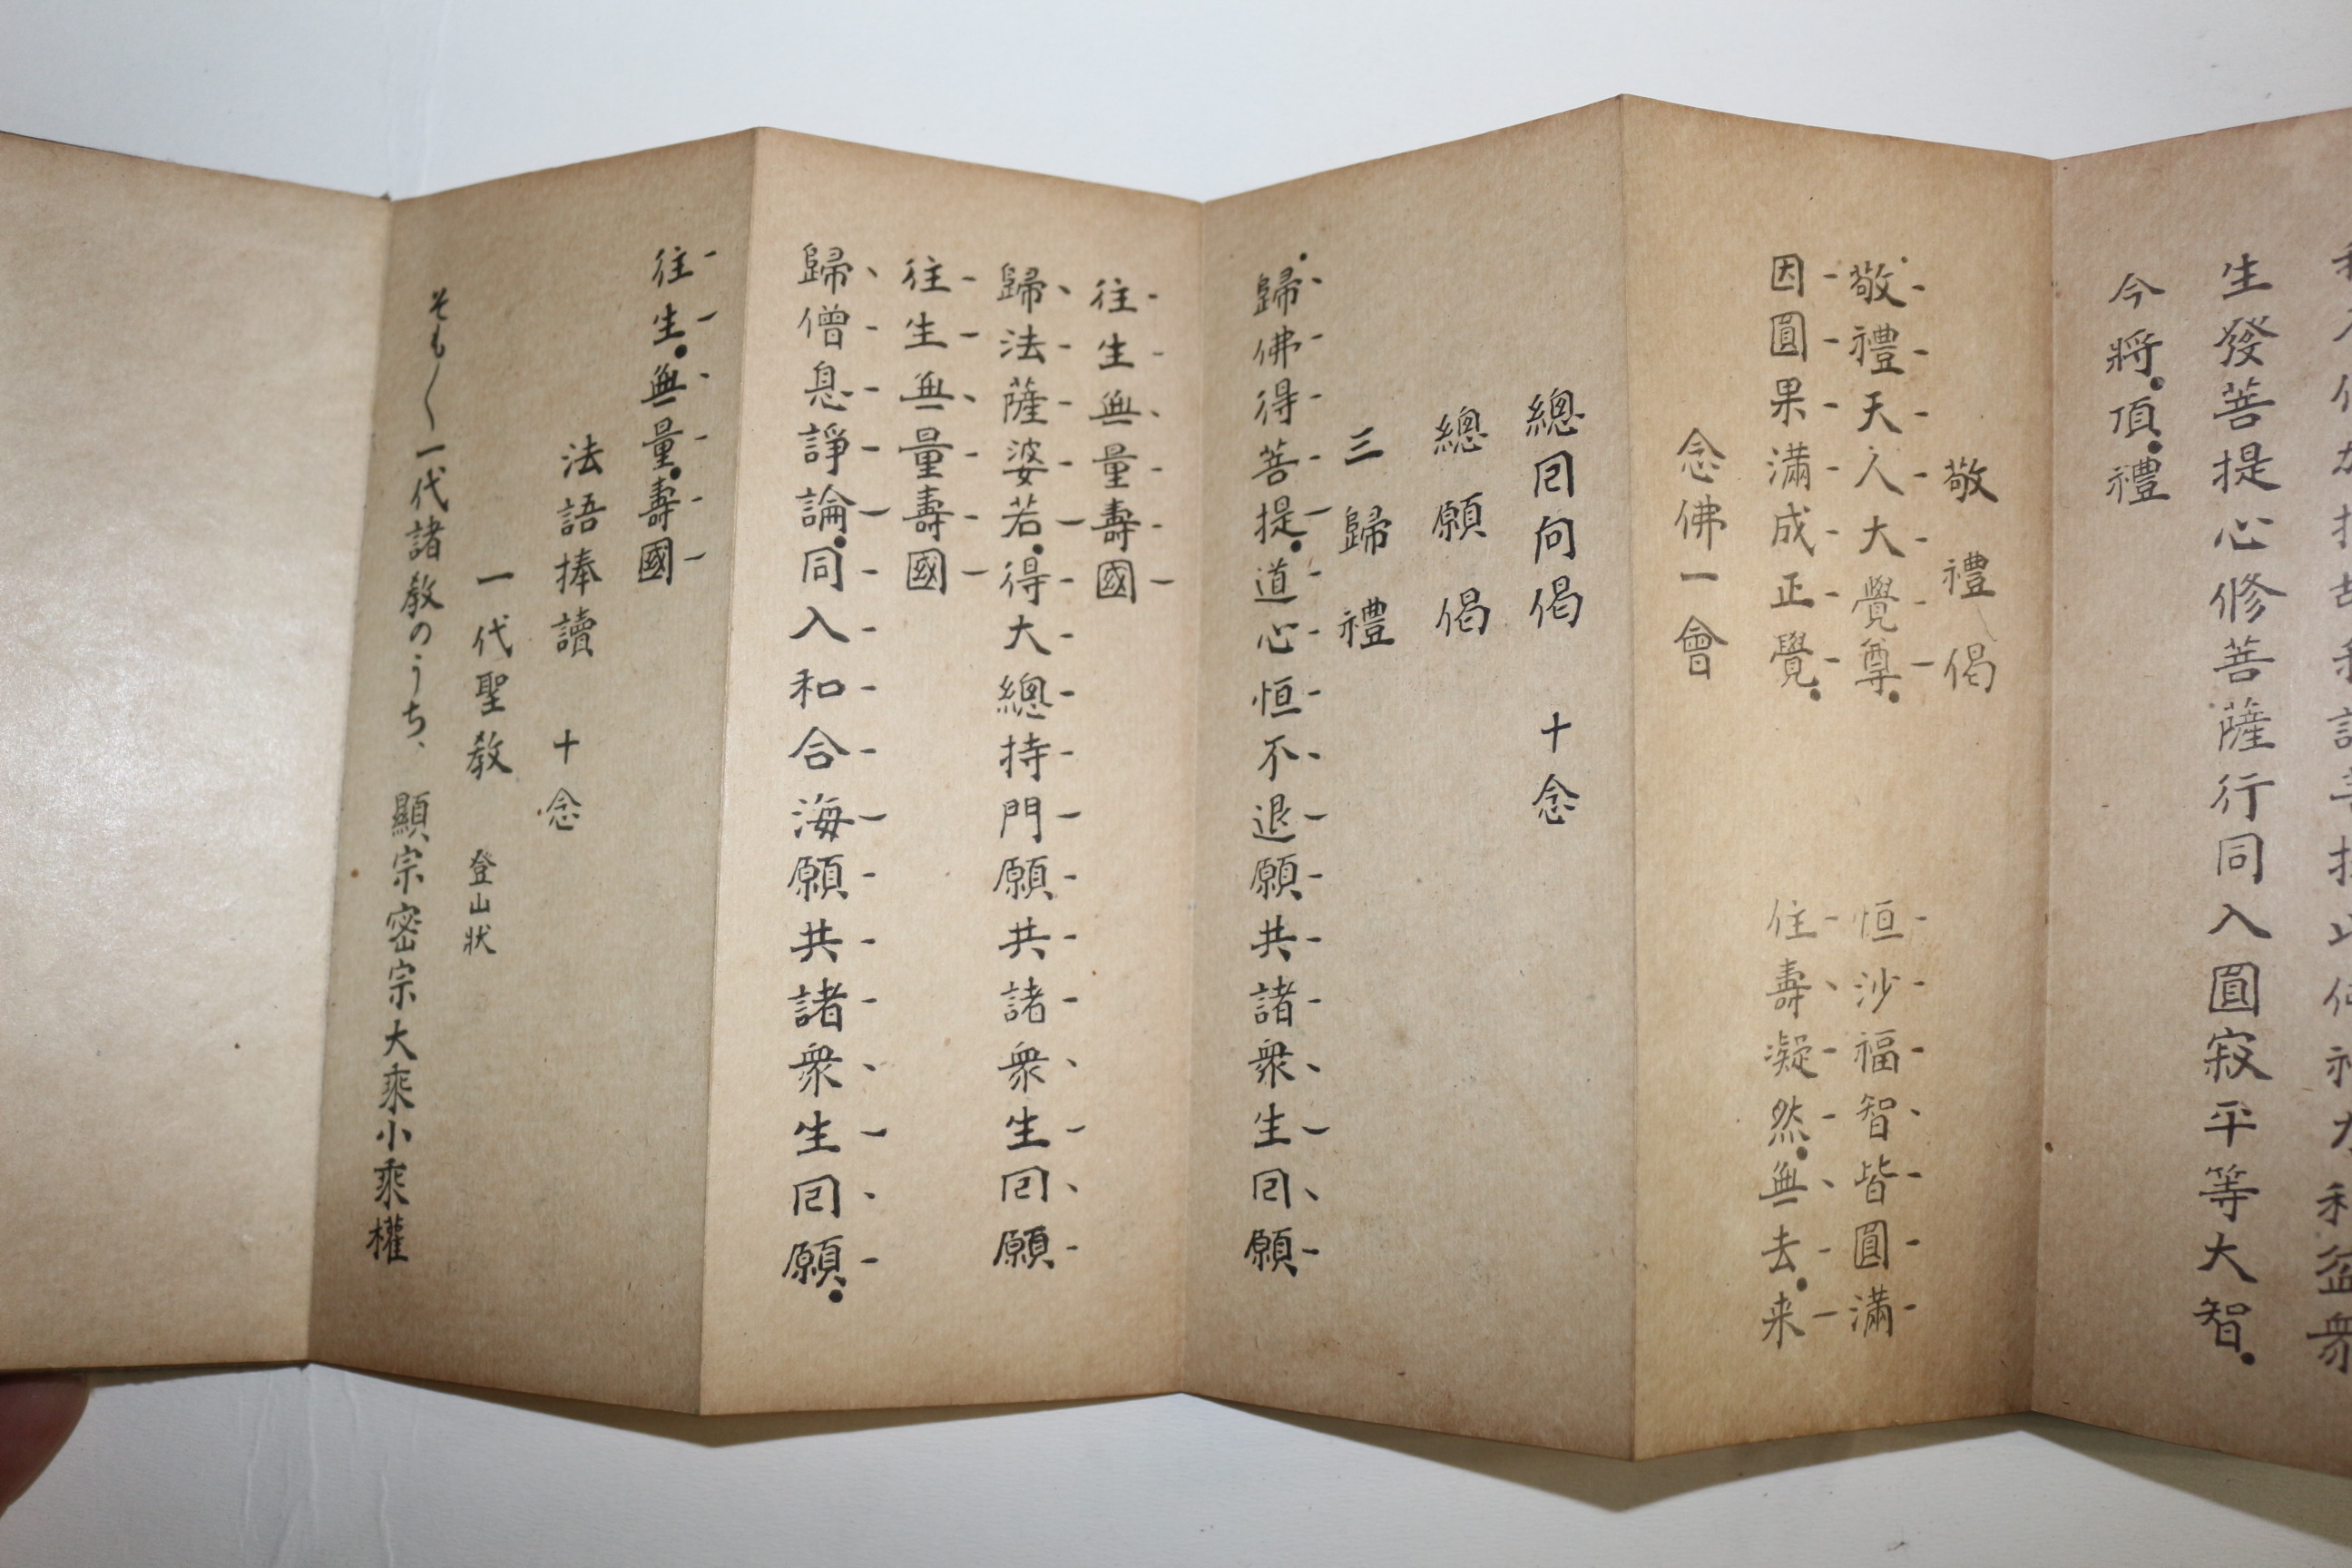 生發菩提心修菩薩行同入圓寂平等大智
今將頂禮
敬禮偈
敬禮天人大覺尊 恒沙福智皆圓滿
因圓果滿成正覺 住壽凝然無去来
念佛一會
總囘向偈 十念
總願偈
三歸禮
歸佛得菩提道心恒不退願共諸衆生囘願
往生無量壽國
歸法薩婆若得大總持門願共諸衆生囘願
往生無量壽國
歸僧息諍論同入和合海願共諸衆生囘願
往生無量壽國
法語捧讀 十念
一代聖教 登山状
そも〱一代諸教のうち、顯宗密宗大乘小乘權